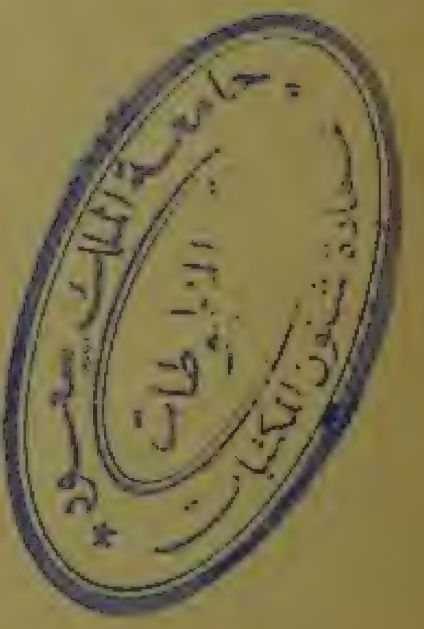 جامعة الملك سعود *
المخطوطات
عمادة شئون المكتبات